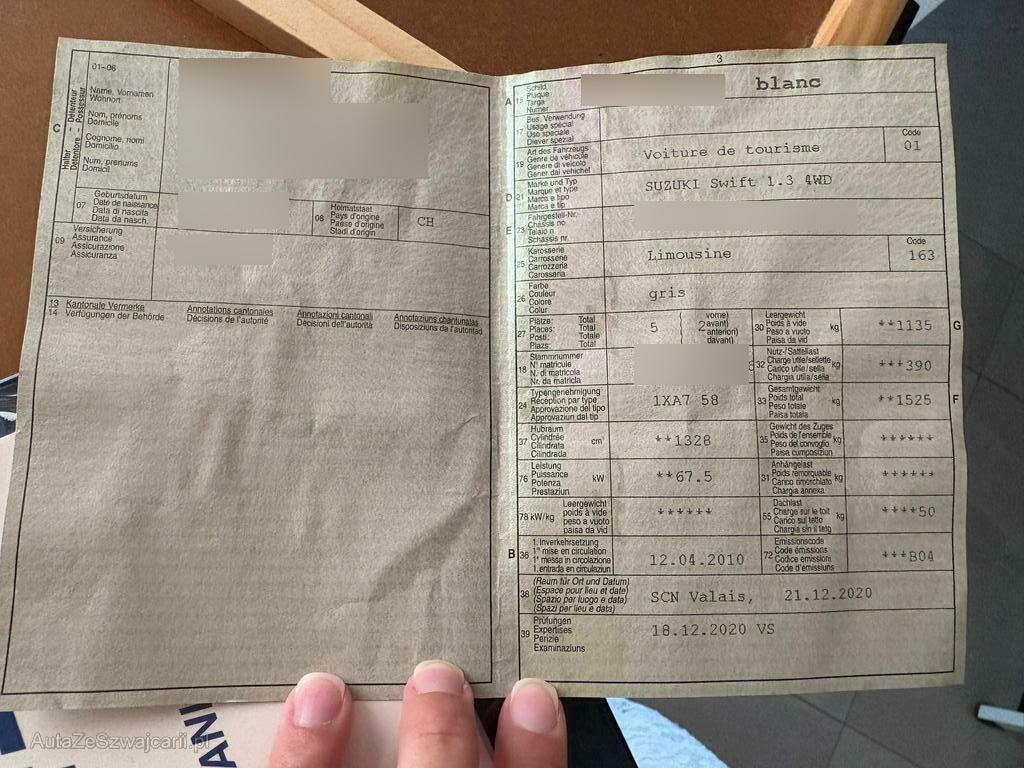 01–06
Name, Vornamen
Wohnort
Nom, prénoms
Domicile
Cognome, nomi
Domicilio
Num, prenums
Domicil
C
Halter Détenteur
Detentore Possessur
07
Geburtsdatum
Date de naissance
Data di nascita
Data da nasch.
08
Heimatstaat
Pays d'origine
Paese d'origine
Stadi d'origin
CH
09
Versicherung
Assurance
Assicurazione
Assicuranza
13
14
Kantonale Vermerke
Verfügungen der Behörde
Annotations cantonales
Décisions de l'autorité
Annotazioni cantonali
Decisioni dell'autorità
Annotaziuns chantunalas
Disposiziuns da l'autoritad
3
A
Schild
Plaque
Targa
Numer
blanc
17
Bes. Verwendung
Usage spécial
Uso speciale
Diever spezial
19
Art des Fahrzeugs
Genre de véhicule
Genere di veicolo
Gener dal vehichel
Voiture de tourisme
Code
01
D
21
Marke und Typ
Marque et type
Marca e tipo
Marca e tip
SUZUKI Swift 1.3 4WD
E
23
Fahrgestell-Nr.
Châssis no
Telaio n
Schassis nr.
25
Karosserie
Carrosserie
Carrozzeria
Carossaria
Limousine
Code
163
26
Farbe
Couleur
Colore
Colur
gris
27
Plätze: Total
Places: Total
Posti: Totale
Plazs: Total
5
2
vorne)
avant)
anteriori)
davant)
30
Leergewicht
Poids à vide
Peso a vuoto
Paisa da vid
kg
**1135
G
18
Stammnummer
N° matricule
N. di matricola
Nr. da matricla
32
Nutz-/Sattellast
Charge utile/sellette
Carico utile/sella
Chargia utila/sella
kg
***390
24
Typengenehmigung
Réception par type
Approvazione del tipo
Approvaziun dal tip
1XA7 58
33
Gesamtgewicht
Poids total
Peso totale
Paisa totala
kg
**1525
F
37
Hubraum
Cylindrée
Cilindrata
Cilindrada
cm³
**1328
35
Gewicht des Zuges
Poids de l'ensemble
Peso del convoglio
Paisa cumposiziun
kg
******
76
Leistung
Puissance
Potenza
Prestaziun
kW
**67.5
31
Anhängelast
Poids remorquable
Carico rimorchiato
Chargia annexa
kg
******
78 kW/kg
Leergewicht
poids à vide
peso a vuoto
paisa da vid
******
55
Dachlast
Charge sur le toit
Carico sul tetto
Chargia sin il tetg
kg
****50
B
36
1. Inverkehrsetzung
1re mise en circulation
1a messa in circolazione
1. entrada en circulaziun
12.04.2010
72
Emissionscode
Code émissions
Codice emissioni
Code d'emissiuns
***B04
38
(Raum für Ort und Datum)
(Espace pour lieu et date)
(Spazio per luogo e data)
(Spazi per lieu e data)
SCN Valais, 21.12.2020
39
Prüfungen
Expertises
Perizie
Examinaziuns
18.12.2020 VS
AutaZeSzwajcarii.pl
ANI